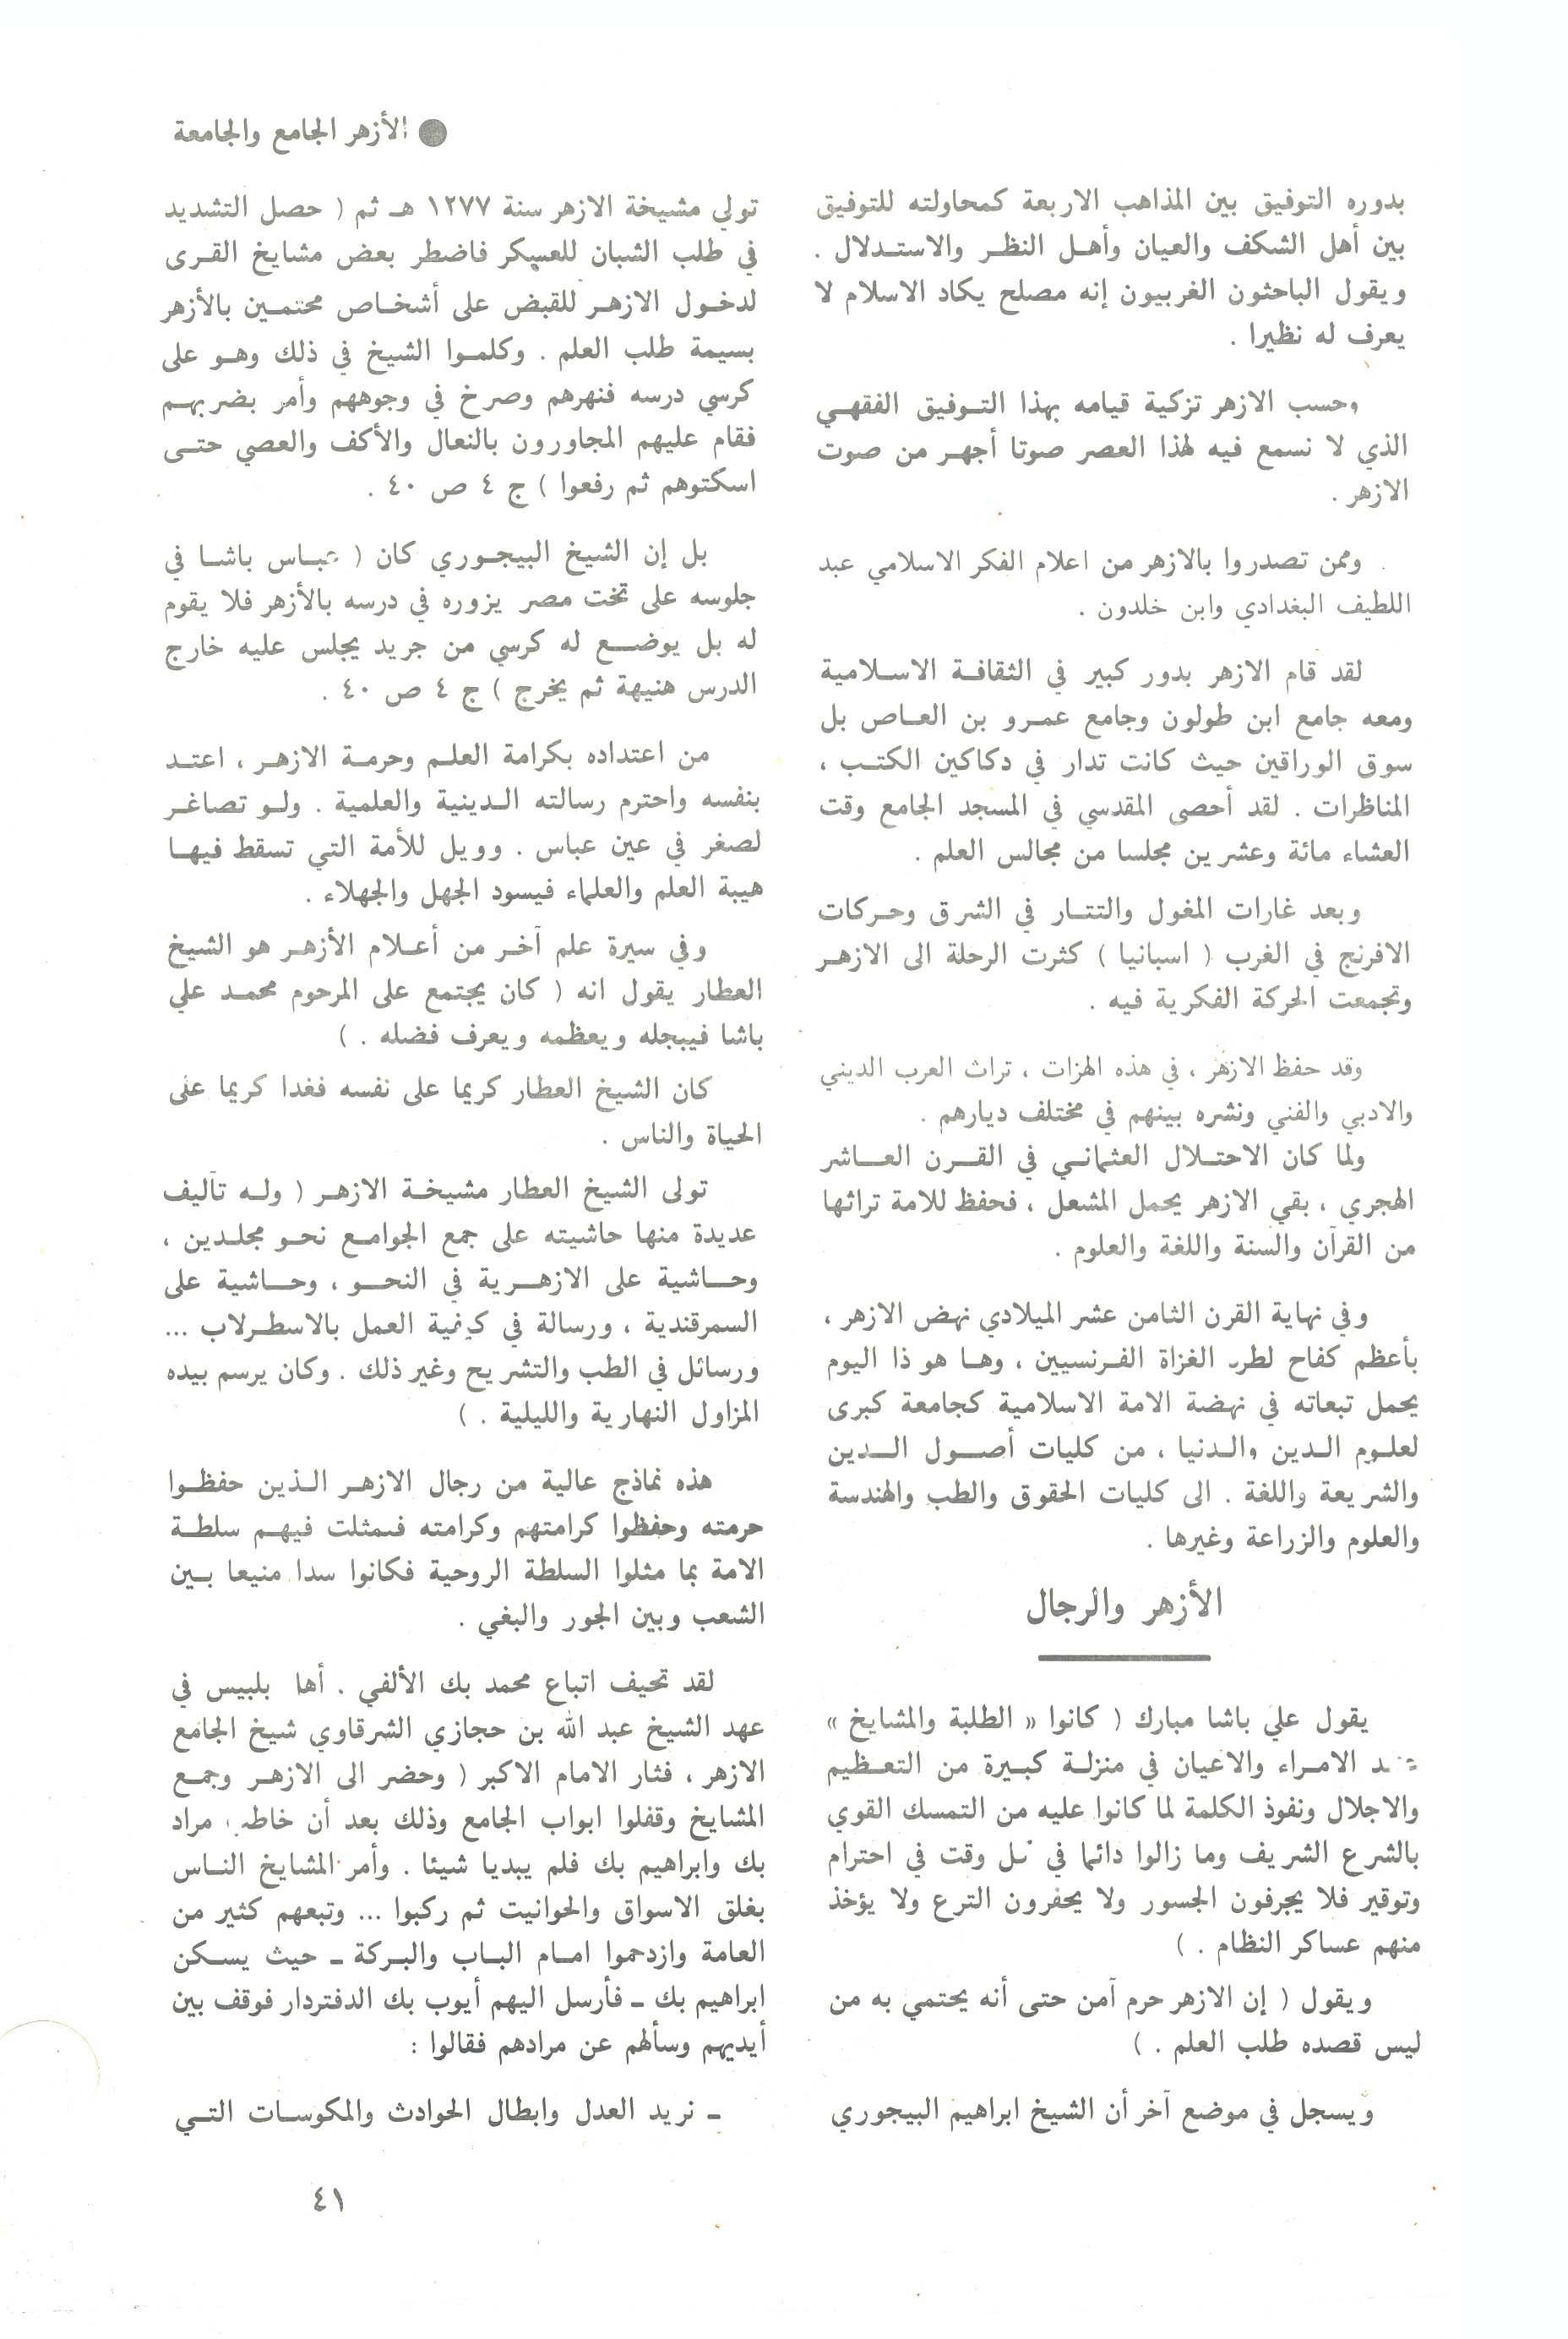 ● الأزهر الجامع والجامعة
بدوره التوفيق بين المذاهب الاربعة كمحاولته للتوفيق
بين أهل الشكف والعيان وأهل النظر والاستدلال .
ويقول الباحثون الغربيون إنه مصلح يكاد الاسلام لا
يعرف له نظيرا .
وحسب الازهر تزكية قيامه بهذا التوفيق الفقهي
الذي لا نسمع فيه لهذا العصر صوتا أجهر من صوت
الازهر .
وممن تصدروا بالازهر من اعلام الفكر الاسلامي عبد
اللطيف البغدادي وابن خلدون .
لقد قام الازهر بدور كبير في الثقافة الاسلامية
ومعه جامع ابن طولون وجامع عمرو بن العاص بل
سوق الوراقين حيث كانت تدار في دكاكين الكتب ،
المناظرات . لقد أحصى المقدسي في المسجد الجامع وقت
العشاء مائة وعشرين مجلسا من مجالس العلم .
وبعد غارات المغول والتتار في الشرق وحركات
الافرنج في الغرب ( اسبانيا ) كثرت الرحلة الى الازهر
وتجمعت الحركة الفكرية فيه .
وقد حفظ الازهر ، في هذه الهزات ، تراث العرب الديني
والادبي والفني ونشره بينهم في مختلف ديارهم .
ولما كان الاحتلال العثماني في القرن العاشر
الهجري ، بقي الازهر يحمل المشعل ، فحفظ للامة تراثها
من القرآن والسنة واللغة والعلوم .
وفي نهاية القرن الثامن عشر الميلادي نهض الازهر ،
بأعظم كفاح لطرد الغزاة الفرنسيين ، وها هو ذا اليوم
يحمل تبعاته في نهضة الامة الاسلامية كجامعة كبرى
لعلوم الدين والدنيا ، من كليات أصول الدين
والشريعة واللغة . الى كليات الحقوق والطب والهندسة
والعلوم والزراعة وغيرها .
الأزهر والرجال
يقول علي باشا مبارك ( كانوا « الطلبة والمشايخ »
الامراء والاعيان في منزلة كبيرة من التعظيم
والاجلال ونفوذ الكلمة لما كانوا عليه من التمسك القوي
بالشرع الشريف وما زالوا دائما في وقت في احترام
وتوقير فلا يجرفون الجسور ولا يحفرون الترع ولا يؤخذ
منهم عساكر النظام . )
ويقول ( إن الازهر حرم آمن حتى أنه يحتمي به من
ليس قصده طلب العلم . )
ويسجل في موضع آخر أن الشيخ ابراهيم البيجوري
تولي مشيخة الازهر سنة ١٢٧٧ هـ ثم ( حصل التشديد
في طلب الشبان للعسكر فاضطر بعض مشايخ القرى
لدخول الازهر للقبض على أشخاص محتمين بالأزهر
بسيمة طلب العلم . وكلموا الشيخ في ذلك وهو على
كرسي درسه فنهرهم وصرخ في وجوههم وأمر بضربهم
فقام عليهم المجاورون بالنعال والأكف والعصي حتى
اسكتوهم ثم رفعوا ) ج ٤ ص ٤٠ .
بل إن الشيخ البيجوري كان ( عباس باشا في
جلوسه على تخت مصر يزوره في درسه بالأزهر فلا يقوم
له بل يوضع له كرسي من جريد يجلس عليه خارج
الدرس هنيهة ثم يخرج ) ج ٤ ص ٤٠ .
من اعتداده بكرامة العلم وحرمة الازهر ، اعتد
بنفسه واحترم رسالته الدينية والعلمية . ولو تصاغر
لصغر في عين عباس . وويل للأمة التي تسقط فيها
هيبة العلم والعلماء فيسود الجهل والجهلاء .
وفي سيرة علم آخر من أعلام الأزهر هو الشيخ
العطار يقول انه ( كان يجتمع على المرحوم محمد علي
باشا فيبجله ويعظمه ويعرف فضله . )
كان الشيخ العطار كريما على نفسه فغدا كريما على
الحياة والناس .
تولى الشيخ العطار مشيخة الازهر ( وله تآليف
عديدة منها حاشيته على جمع الجوامع نحو مجلدين ،
وحاشية على الازهرية في النحو ، وحاشية على
السمرقندية ، ورسالة في كيفية العمل بالاسطرلاب ...
ورسائل في الطب والتشريح وغير ذلك . وكان يرسم بيده
المزاول النهارية والليلية . )
هذه نماذج عالية من رجال الازهر الذين حفظوا
حرمته وحفظوا كرامتهم وكرامته فمثلت فيهم سلطة
الامة بما مثلوا السلطة الروحية فكانوا سدا منيعا بين
الشعب وبين الجور والبغي .
لقد تحيف اتباع محمد بك الألفي . بلبيس في
عهد الشيخ عبد الله بن حجازي الشرقاوي شيخ الجامع
الازهر ، فثار الامام الاكبر ( وحضر الى الازهر وجمع
المشايخ وقفلوا ابواب الجامع وذلك بعد أن مراد
بك وابراهيم بك فلم يبديا شيئا . وأمر المشايخ الناس
بغلق الاسواق والحوانيت ثم ركبوا ... وتبعهم كثير من
العامة وازدحموا امام الباب والبركة - حيث يسكن
ابراهيم بك - فأرسل اليهم أيوب بك الدفتردار فوقف بين
أيديهم وسألهم عن مرادهم فقالوا :
- نريد العدل وابطال الحوادث والمكوسات التي
٤١